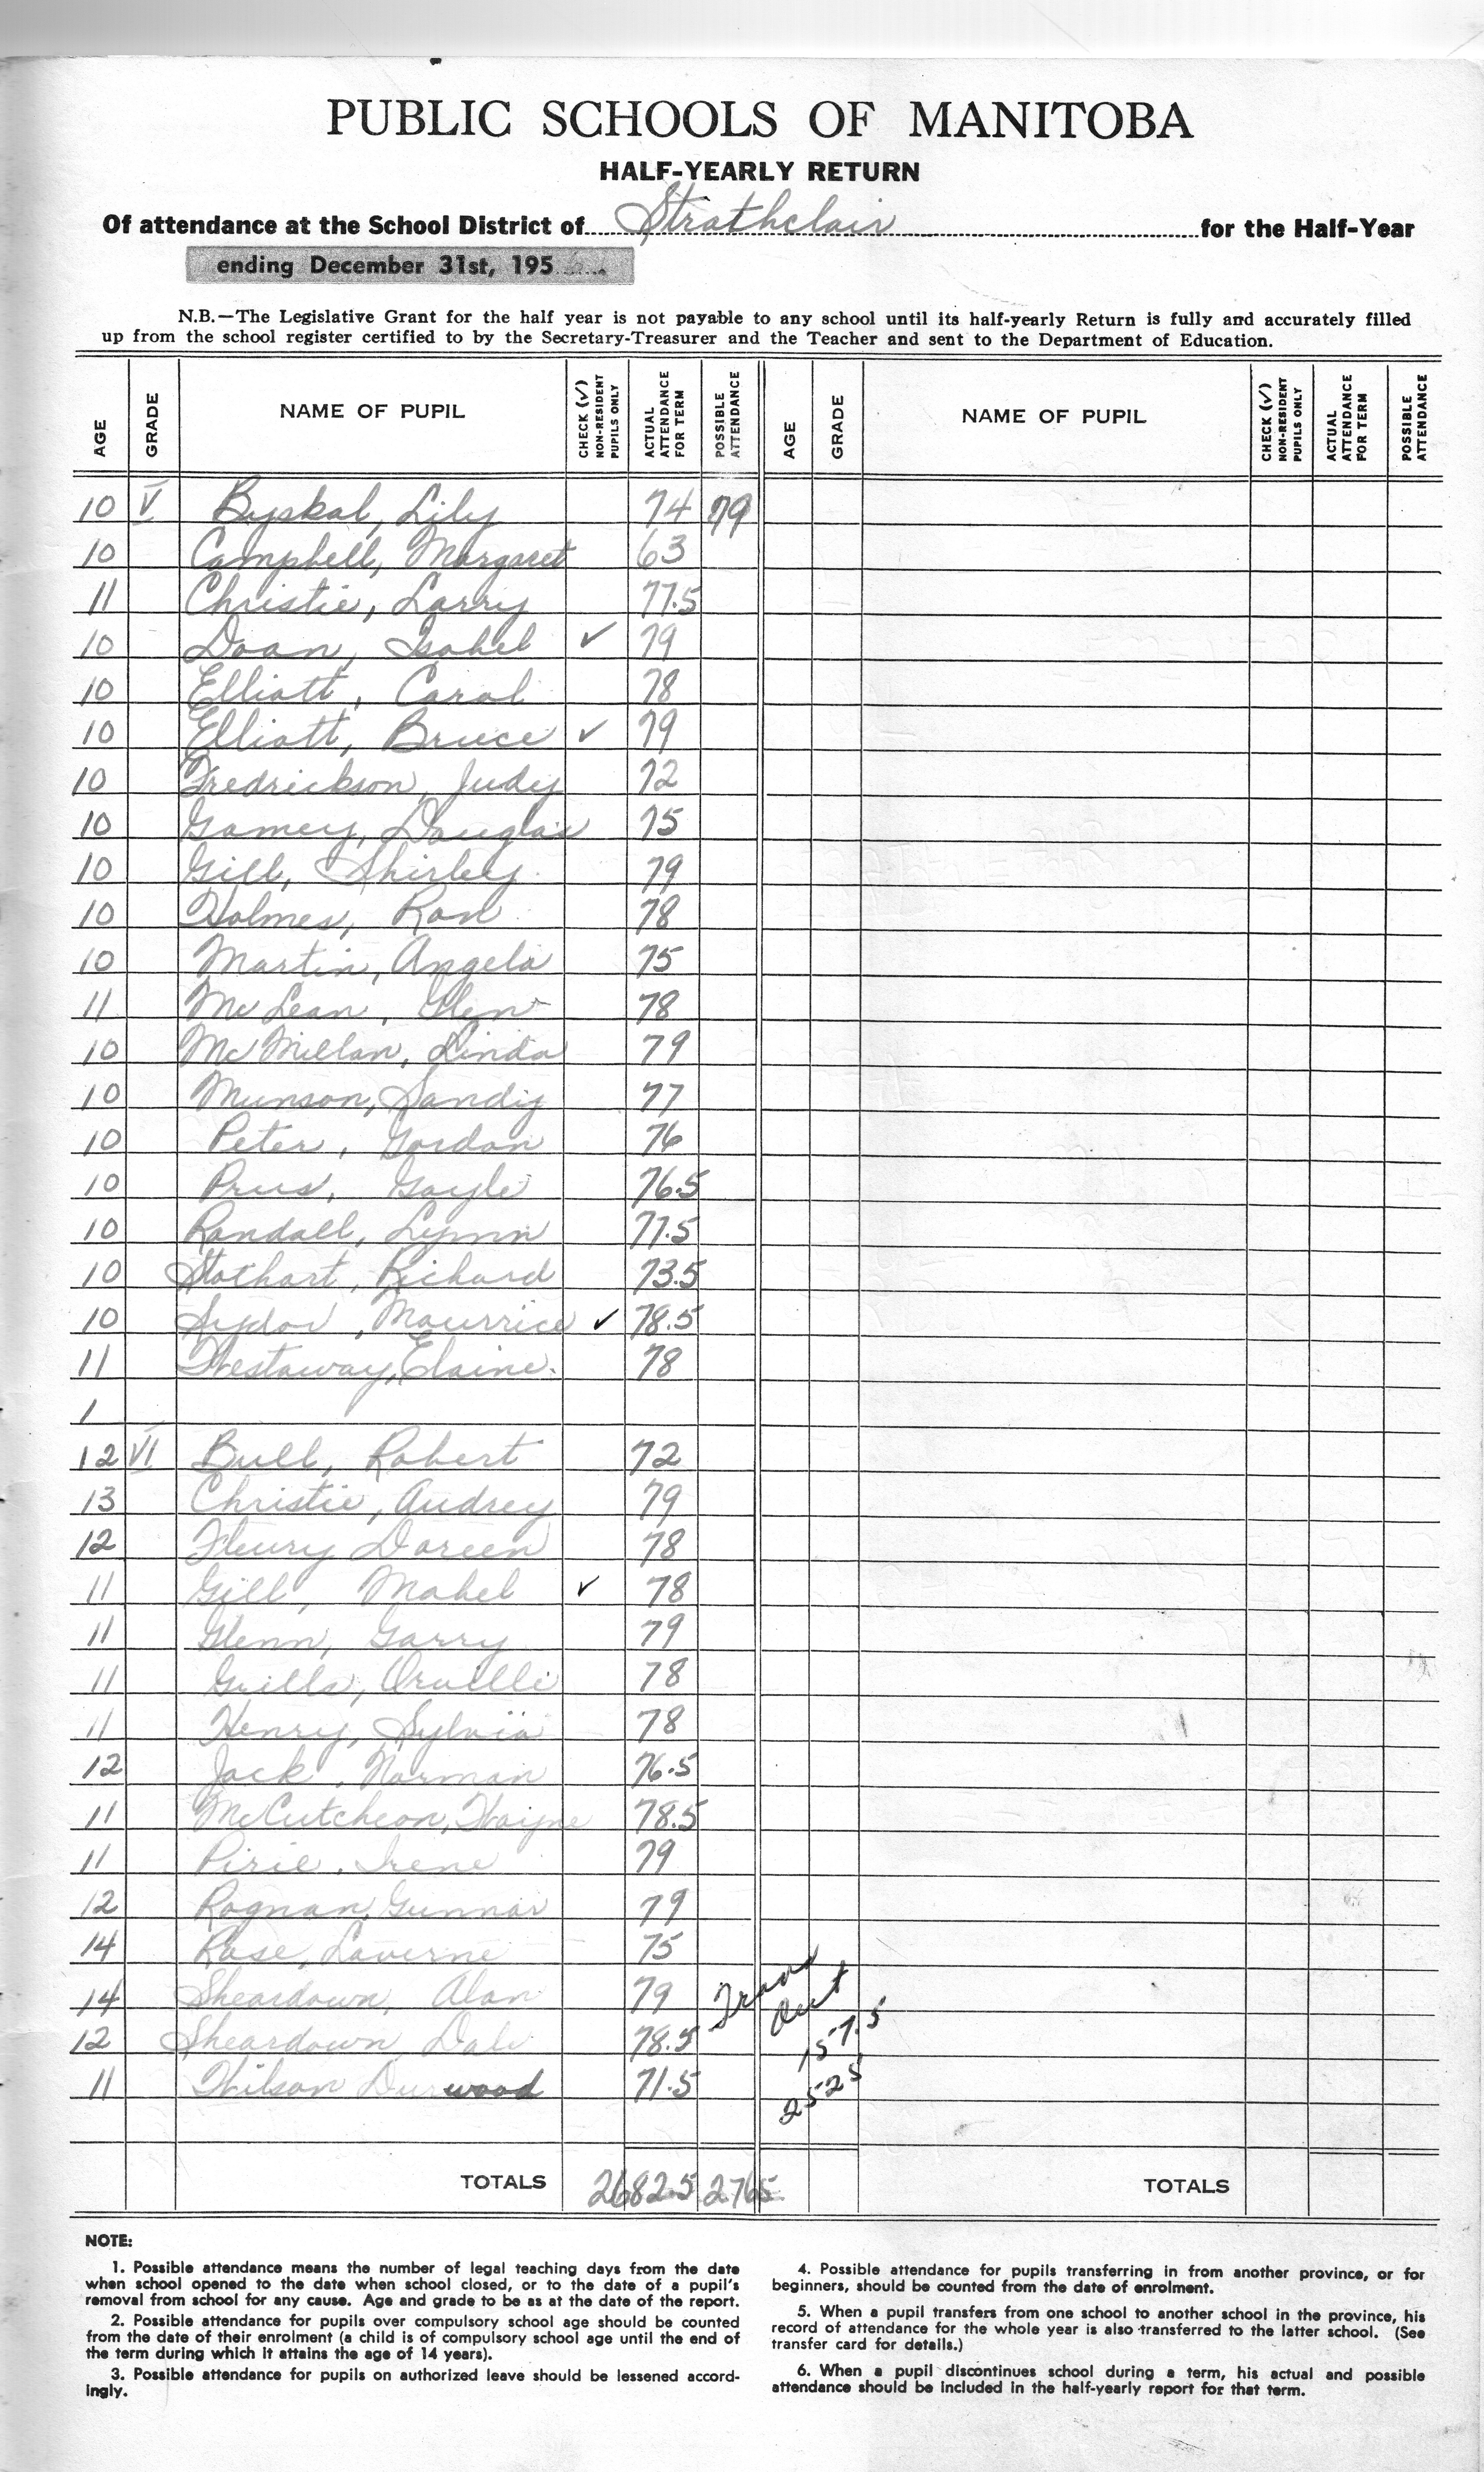 PUBLIC SCHOOLS OF MANITOBA
HALF-YEARLY RETURN
Of attendance at the School District of Strathclair for the Half-Year
ending December 31st, 195
N.B.—The Legislative Grant for the half year is not payable to any school until its half-yearly Return is fully and accurately filled
up from the school register certified to by the Secretary-Treasurer and the Teacher and sent to the Department of Education.
AGE GRADE NAME OF PUPIL CHECK (✓) NON-RESIDENT PUPILS ONLY ACTUAL ATTENDANCE FOR TERM POSSIBLE ATTENDANCE AGE GRADE NAME OF PUPIL CHECK (✓) NON-RESIDENT PUPILS ONLY ACTUAL ATTENDANCE FOR TERM POSSIBLE ATTENDANCE
10 V Byskal, Lily 74 79
10 Campbell, Margaret 63
11 Christie, Larry 77.5
10 Doan, Isabel ✓ 79
10 Elliott, Carol 78
10 Elliott, Bruce ✓ 79
10 Fredrickson, Judy 72
10 Gamey, Douglas 75
10 Gill, Shirley. 79
10 Holmes, Ron 78
10 Martin, Angela 75
11 McLean, Glen 78
10 McMillan, Linda 79
10 Munson, Sandy 77
10 Peter, Gordon 76
10 Prus, Gayle 76.5
10 Randall, Lynn 77.5
10 Stothart, Richard 73.5
10 Sydor, Maurrice ✓ 78.5
11 Westaway, Elaine. 78
1
12 VI Bull, Robert 72
13 Christie, Audrey 79
12 Fleury Doreen 78
11 Gill, Mabel ✓ 78
11 Glenn, Garry 79
11 Grills, Orville 78
11 Henry, Sylvia 78
12 Jack, Norman 76.5
11 McCutcheon, Wayne 78.5
11 Pirie, Irene 79
12 Rognan, Gunnar 79
14 Rose, Laverne 75
14 Sheardown, Alan 79 Trans Out
12 Sheardown Dale 78.5 157.5
11 Wilson Durwood 71.5 2525
TOTALS 2682.5 2765 TOTALS
NOTE:
1. Possible attendance means the number of legal teaching days from the date
when school opened to the date when school closed, or to the date of a pupil's
removal from school for any cause. Age and grade to be as at the date of the report.
2. Possible attendance for pupils over compulsory school age should be counted
from the date of their enrolment (a child is of compulsory school age until the end of
the term during which it attains the age of 14 years).
3. Possible attendance for pupils on authorized leave should be lessened accord-
ingly.
4. Possible attendance for pupils transferring in from another province, or for
beginners, should be counted from the date of enrolment.
5. When a pupil transfers from one school to another school in the province, his
record of attendance for the whole year is also transferred to the latter school. (See
transfer card for details.)
6. When a pupil discontinues school during a term, his actual and possible
attendance should be included in the half-yearly report for that term.